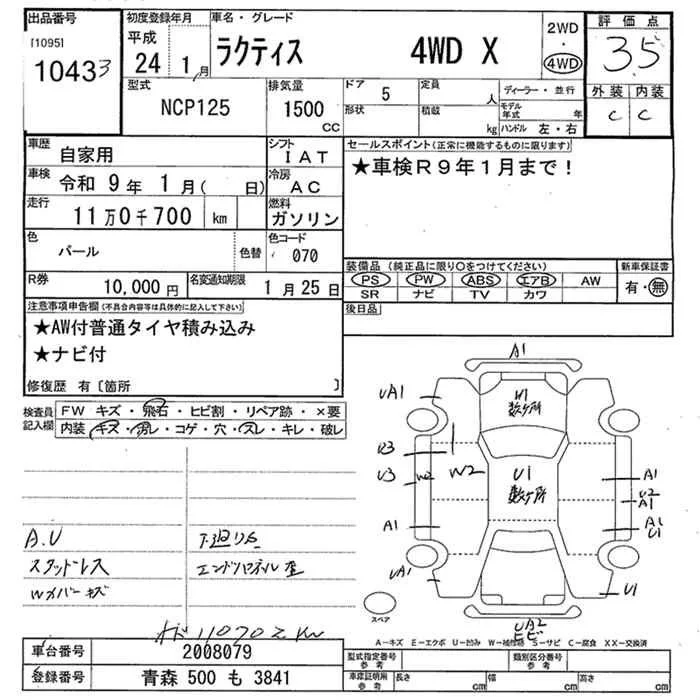 出品番号 初度登録年月 車名・グレード 評価点
[1095] 平成 ラクティス 4WD X 2WD・4WD 3.5
10433 24 1月 外装 内装
型式 排気量 ドア 定員 ディーラー・並行 C C
NCP125 1500 CC 5 人 モデル年式 年
形状 積載 kg ハンドル 左・右
車歴 自家用 シフト IAT セールスポイント(正常に機能するものに限ります)
車検 令和 9年 1月( 日) 冷房 AC ★車検R9年1月まで!
走行 11万0千700 km 燃料 ガソリン
色 パール 色替 色コード 070
装備品 (純正品に限り○をつけてください) 新車保証書
R券 10,000円 名変通知期限 1月25日 PS PW ABS エアB AW 有・無
SR ナビ TV カワ
注意事項申告欄(不具合内容等は具体的に記入して下さい) 後日品
★AW付普通タイヤ積み込み
★ナビ付
修復歴 有〔箇所 〕
検査員記入欄 FW キズ・飛石・ヒビ割・リペア跡・×要
内装 キズ・汚レ・コゲ・穴・スレ・キレ・破レ
A1
UA1 W1 数ヶ所
U3 W2 W2 U1 数ヶ所 A1
U2
A1
A1 A1
U1
UA1 U1
A.U 下廻りS
スタッドレス
Wカバーキズ
スペア UA2
ヒビ
A-キズ E-エクボ U-凹み W-補修跡 S-サビ C-腐食 XX-交換済
車台番号 2008079 型式指定番号 参考 類別区分番号 参考
登録番号 青森 500 も 3841 車庫証明用 参考 長さ cm 幅 cm 高さ cm